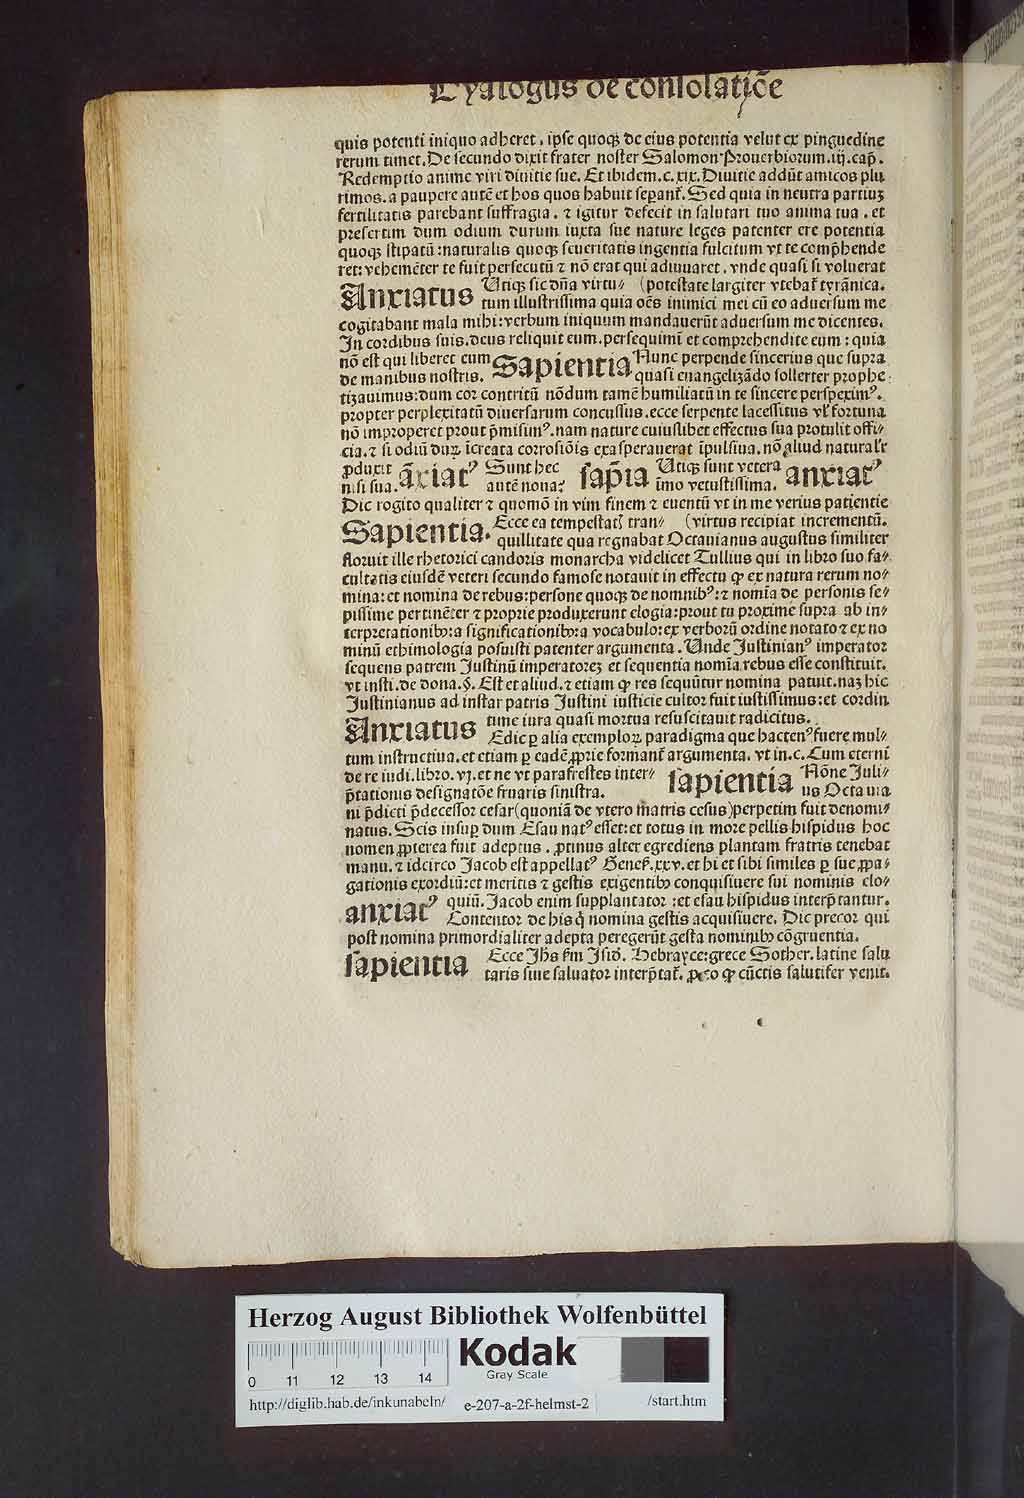 Dyalogus de consolatiōe
quis potenti iniquo adheret. ipse quoqꝫ de eius potentia velut ex pinguedine
rerum timet. De secundo dixit frater noster Salomon Prouerbiorum. iij. cap̄.
Redemptio anime viri diuitie sue. Et ibidem. c. xix. Diuitie addūt amicos plu
rimos. a paupere autē et hos quos habuit sepant᷑. Sed quia in neutra partiuꝫ
fertilitatis parebant suffragia. ⁊ igitur defecit in salutari tuo anima tua. et
presertim dum odium durum iuxta sue nature leges patenter ere potentia
quoqꝫ stipatū: naturalis quoqꝫ seueritatis ingentia fulcitum vt te comp̄hende
ret: vehemēter te fuit persecutū ⁊ nō erat qui adiuuaret. vnde quasi si voluerat
Anxiatus Utiqꝫ sic dn̄a virtu⸗ (potestate largiter vtebat᷑ tyrānica.
tum illustrissima quia oēs inimici mei cū eo aduersum me
cogitabant mala mihi: verbum iniquum mandauerūt aduersum me dicentes.
In cordibus suis. deus reliquit eum. persequimī et comprehendite eum: quia
nō est qui liberet eum Sapientia Nunc perpende sincerius que supra
de manibus nostris. quasi euangelizādo sollerter prophe
tizauimus: dum cor contritū nōdum tamē humiliatū in te sincere perspeximꝰ.
propter perplexitatū diuersarum concussus. ecce serpente lacessitus vl̓ fortuna
nō improperet prout p̄misimꝰ. nam nature cuiuslibet effectus sua protulit offi⸗
cia. ⁊ si odiū duꝝ īcreata corrosiōis exasperauerat īpulsiua. nō aliud naturalr̄
ꝓduxit āxiatꝰ Sunt hec sap̄ia Utiqꝫ sunt vetera anxiatꝰ
nisi sua. autē noua? īmo vetustissima.
Dic rogito qualiter ⁊ quomō in vim finem ⁊ euentū vt in me verius patientie
Sapientia. Ecce ea tempestatꝭ tran⸗ (virtus recipiat incrementū.
quillitate qua regnabat Octauianus augustus similiter
floruit ille rhetorici candoris monarcha videlicet Tullius qui in libro suo fa⸗
cultatis eiusdē veteri secundo famose notauit in effectu ꝙ ex natura rerum no⸗
mina: et nomina de rebus: persone quoqꝫ de nomnibꝰ: ⁊ nomīa de personis se⸗
pissime pertinēter ⁊ proprie produxerunt elogia: prout tu proxime supra ab in⸗
terpretationibꝰ: a significationibꝰ: a vocabulo: ex verborū ordine notato ⁊ ex no
minū ethimologia posuisti patenter argumenta. Unde Justinianꝰ imperator
sequens patrem Justinū imperatoreꝫ et sequentia nomīa rebus esse constituit.
vt insti. de dona. §. Est et aliud. ⁊ etiam ꝙ res sequūtur nomina patuit. naꝫ hic
Justinianus ad instar patris Justini iusticie cultor fuit iustissimus: et cordin
Anxiatus time iura quasi mortua resuscitauit radicitus.
Edic ꝑ alia exemploꝝ paradigma que hactenꝰ fuere mul⸗
tum instructiua. et etiam ꝑ eadē ꝓprie formant᷑ argumenta. vt in. c. Cum eterni
de re iudi. libro. vj. et ne vt parafrestes inter⸗ sapientia Nōne Juli⸗
p̄tationis designatōe fruaris sinistra. us Octauia
ni p̄dicti p̄decessor cesar (quoniā de vtero matris cesus) perpetim fuit denomi⸗
natus. Scis insuꝑ dum Esau natꝰ esset: et totus in more pellis hispidus hoc
nomen ꝓpterea fuit adeptus. ꝓtinus alter egrediens plantam fratris tenebat
manu. ⁊ idcirco Jacob est appellatꝰ Genes. xxv. et hi et sibi similes ꝑ sue ꝓpa⸗
gationis exordiū: et meritis ⁊ gestis exigentibꝰ conquisiuere sui nominis elo⸗
anxiatꝰ quiū. Jacob enim supplantator: et esau hispidus interp̄tantur.
Contentor de his q̄ nomina gestis acquisiuere. Dic precor qui
post nomina primordialiter adepta peregerūt gesta nominibꝰ cōgruentia.
sapientia Ecce Jhs s̄m Jsid. Hebrayce: grece Sother. latine salu
taris siue saluator interp̄tat᷑. ꝓ eo ꝙ cūctis salutifer venit.
Herzog August Bibliothek Wolfenbüttel
0 11 12 13 14
Kodak
Gray Scale
http://diglib.hab.de/inkunabeln/ e-207-a-2f-helmst-2 /start.htm